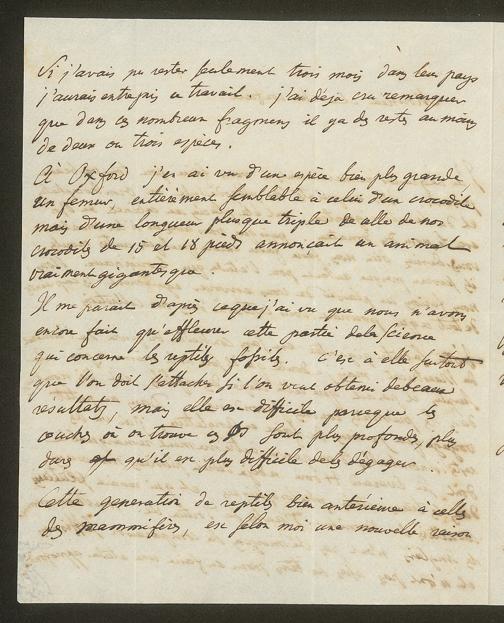 Si j'avais pu rester seulement trois mois dans leur pays
j'aurais entrepris ce travail. j'ai déja cru remarquer
que dans ces nombreux fragmens il y a des restes au moins
de deux ou trois espèces.
à Oxford j'en ai vu d'un espèce bien plus grande,
un femur, entièrement semblable à celui d'un crocodile
mais d'une longueur plus que triple de celle de nos
crocodiles de 15 et 18 pieds annonçait un animal
vraiment gigantesque.
Il me parait d'après ce que j'ai vu que nous n'avons
encore fait qu'effleurer cette partie de la Science
qui concerne les reptiles fossiles. c'est à elle surtout
que l'on doit s'attacher si l'on veut obtenir de beaux
résultats, mais elle est difficile parceque les
couches où on trouve ces os sont plus profondes, plus
dures et qu'il est plus difficile de les dégager.
Cette generation de reptiles bien antérieure à celle
des mammifères, est selon moi une nouvelle raison